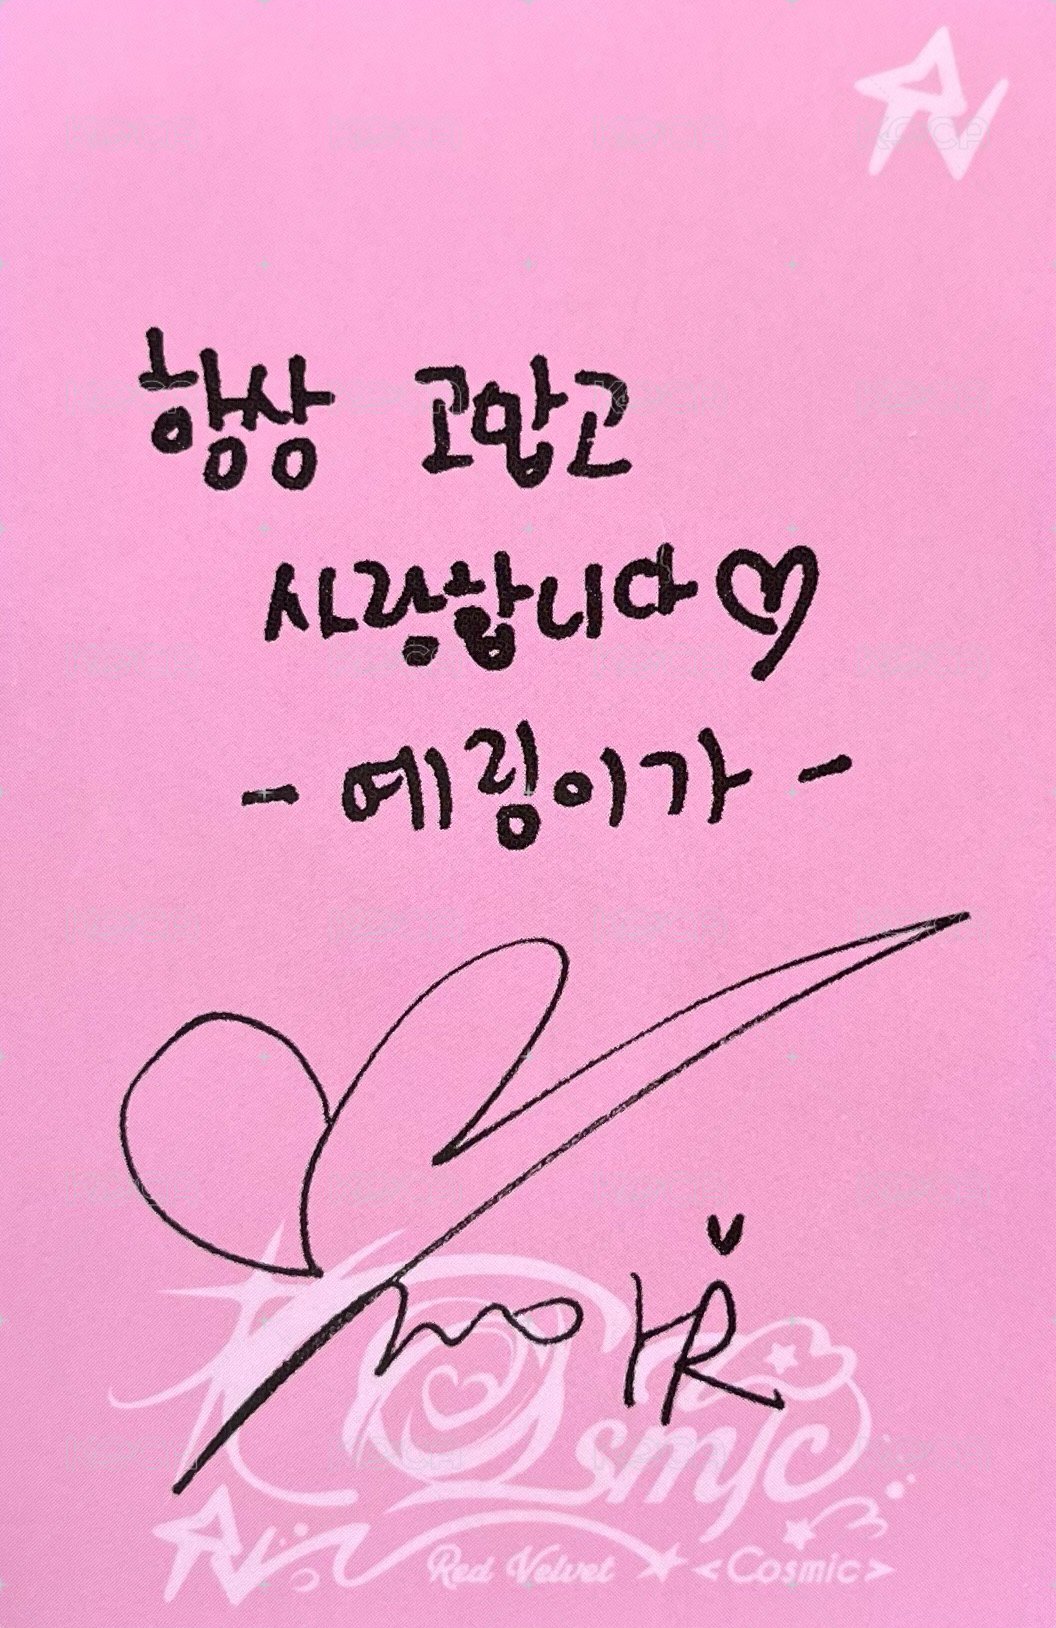 RV
항상 고맙고
사랑합니다♡
- 예림이가 -
Cosmic
RV Red Velvet <Cosmic>